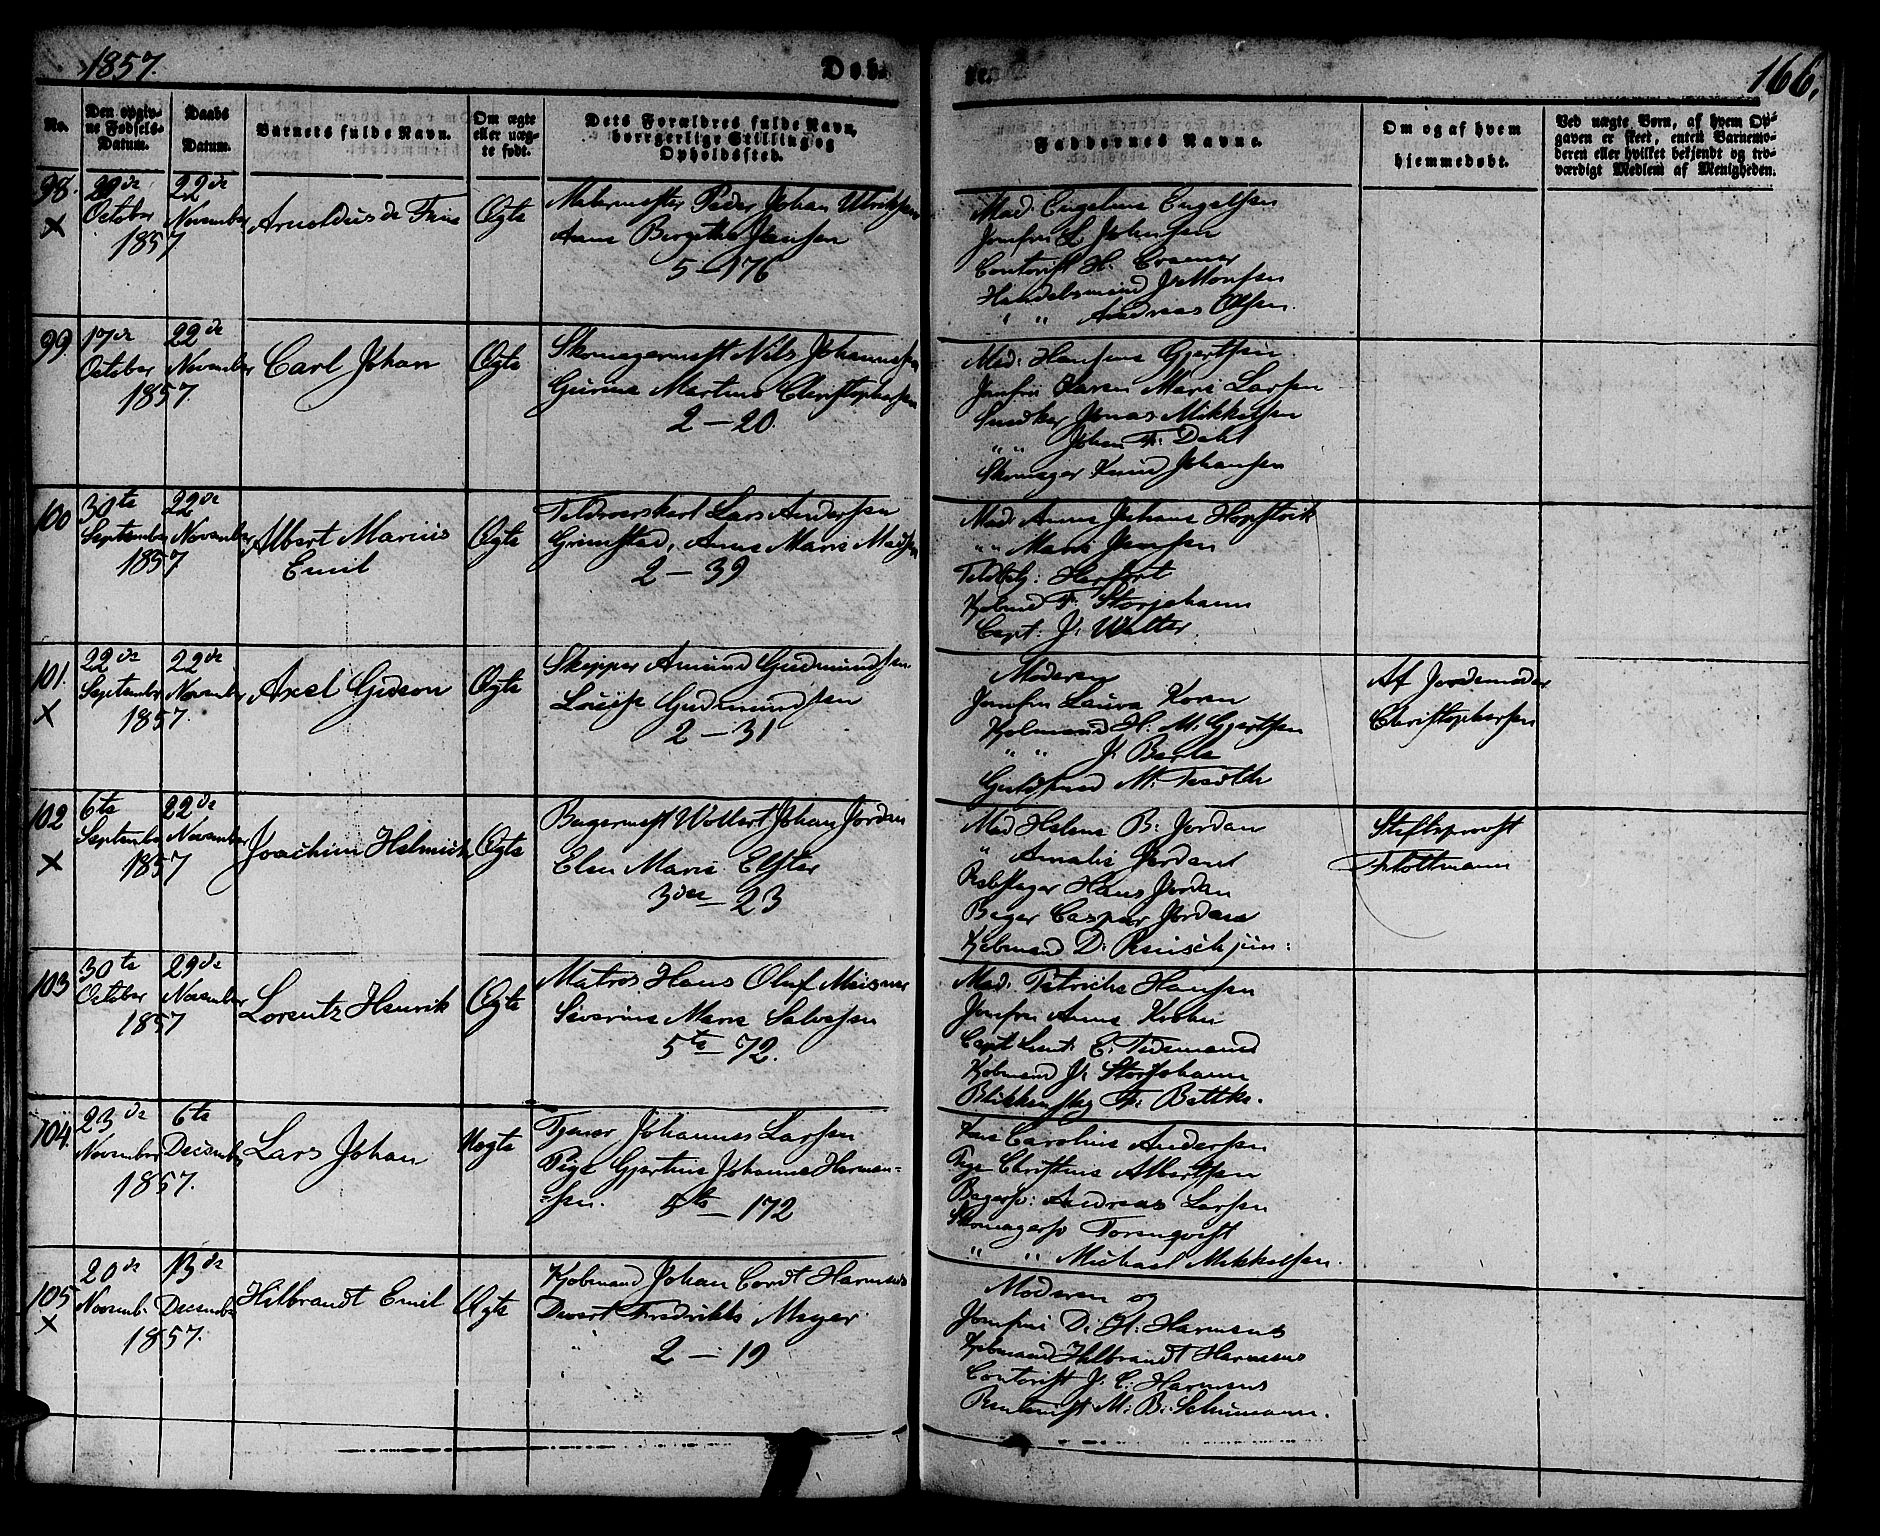 1857.
Døb te.
166.
No.
Den opgivne Fødsels-Datum.
Daabs Datum.
Barnets fulde Navn.
Om ægte eller uægte født.
Dets Forældres fulde Navn, borgerlige Stilling og Opholdssted.
Faddernes Navne.
Om og af hvem hjemmedøbt.
Ved uægte Børn, af hvem Opgaven er skeet, enten Barnemoderen eller hvilket bekjendt og troværdigt Medlem af Menigheden.
98. 22de 22de
October November Arnoldus de Fine Ægte
1857
Malermester Peder Johan Ulriksen
Anne Birgitte Jansen
5 - 176
Mad: Engeline Engelsen
Jomfru L Johnsen
Contorist H.
Handelsmand J. Monsen
" " Andreas Olsen.
99 17de 22de
October November Carl Johan Ægte
1857.
Skomagermest Nils Johannesen
Gurine Martine Christophersen
2 - 20.
Mad: Hansine Gjertsen
Jomfru Karen Marie Larsen
Snedker Jonas Mikkelsen
" " Johan Fr: Dahl
Skomager Knud Johansen
100 30te 22de
September November Albert Marius Emil Ægte
1857
Lars Andersen
Grimstad, Anne Marie Madsen
2 - 39
Mad: Anne Johane
" " Marie Jansen
Herfort
Kjøbmd F. Storjohann
Capt: J. Walter.
101. 22de 22de
September November Axel Gideon Ægte
1857.
Skipper Amund Gudmundsen
Louise Gudmundsen
2 - 31
Moderen
Jomfru Laura Koren
Kjøbmand H. M. Gjertsen
" " J.
Guldsmed M.
Af Jordemoder
Christophersen
102 6te 22de
September November Joachim Helmich Ægte
1857
Bagermest Wollert Johan Jordan
Elen Marie Elster
3die 23
Mad Helene B: Jordan
" Amalie Jordan
Rebslager Hans Jordan
Bager Caspar Jordan
Kjøbmand D: Reusch jun:
Stiftsprovst
Flottmann
103 30te 29de
October November Lorentz Henrik Ægte
1857
Matros Hans Oluf Meisner
Severine Marie Salvesen
5te 72.
Mad: Petricke Hansen
Jomfru Anne Krohn
Capt Lieut: E. Tidemand
Kjøbmand J. Storjohann
Blikkenslg Fr: Bettke.
104. 23de 6te
November December Lars Johan Uægte
1857.
Tjener Johannes Larsen
Pige Gjertine Johanne Herman-
sen. 5te 172
Kone Caroline Andersen
Pige Christine Albertsen
Bagersv: Andreas Larsen
Skomagersv Torenqvist
" " Michael Mikkelsen.
105 20de 13de
Novemb. December Hilbrandt Emil Ægte
1857.
Kjøbmand Johan Cordt Harmens
Dwert Fredrikke Meyer
2 - 19
Moderen og
Jomfrue D: H: Harmens
Kjøbmand Hilbrandt Harmens
Contorist J. C. Harmens
M: B: Schumann.